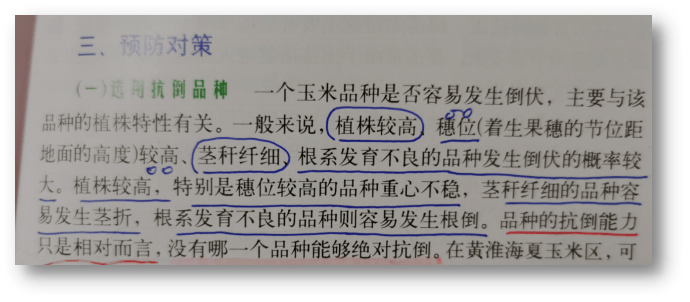 三、预防对策
(一)选用抗倒品种 一个玉米品种是否容易发生倒伏，主要与该
品种的植株特性有关。一般来说，植株较高、穗位(着生果穗的节位距
地面的高度)较高、茎秆纤细、根系发育不良的品种发生倒伏的概率较
大。植株较高，特别是穗位较高的品种重心不稳，茎秆纤细的品种容
易发生茎折，根系发育不良的品种则容易发生根倒。品种的抗倒能力
只是相对而言，没有哪一个品种能够绝对抗倒。在黄淮海夏玉米区，可